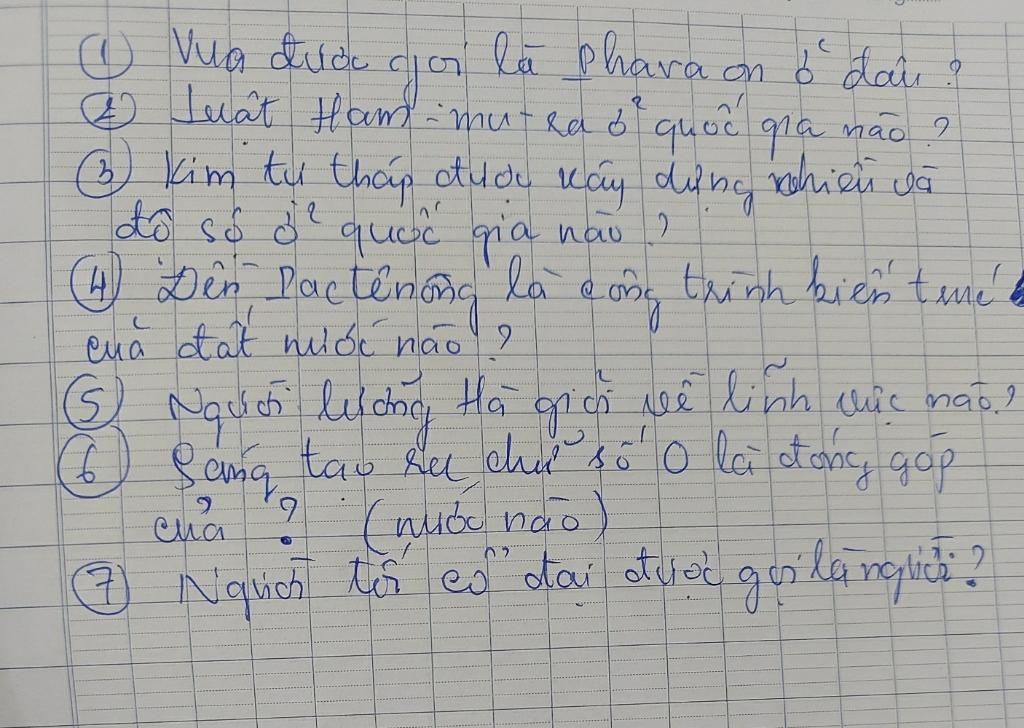 ① Vua được gọi là Pharaon ở đâu?
② Luật Ham-mu-ra ở quốc gia nào?
③ Kim tự tháp được xây dựng nhiều và
đồ sộ ở quốc gia nào?
④ Đền Pactênông là công trình kiến trúc
của đất nước nào?
⑤ Người Lưỡng Hà giỏi về lĩnh vực nào?
⑥ Sáng tạo ra chữ số 0 là đóng góp
của ? (nước nào)
⑦ Người tối cổ đại được gọi là người?